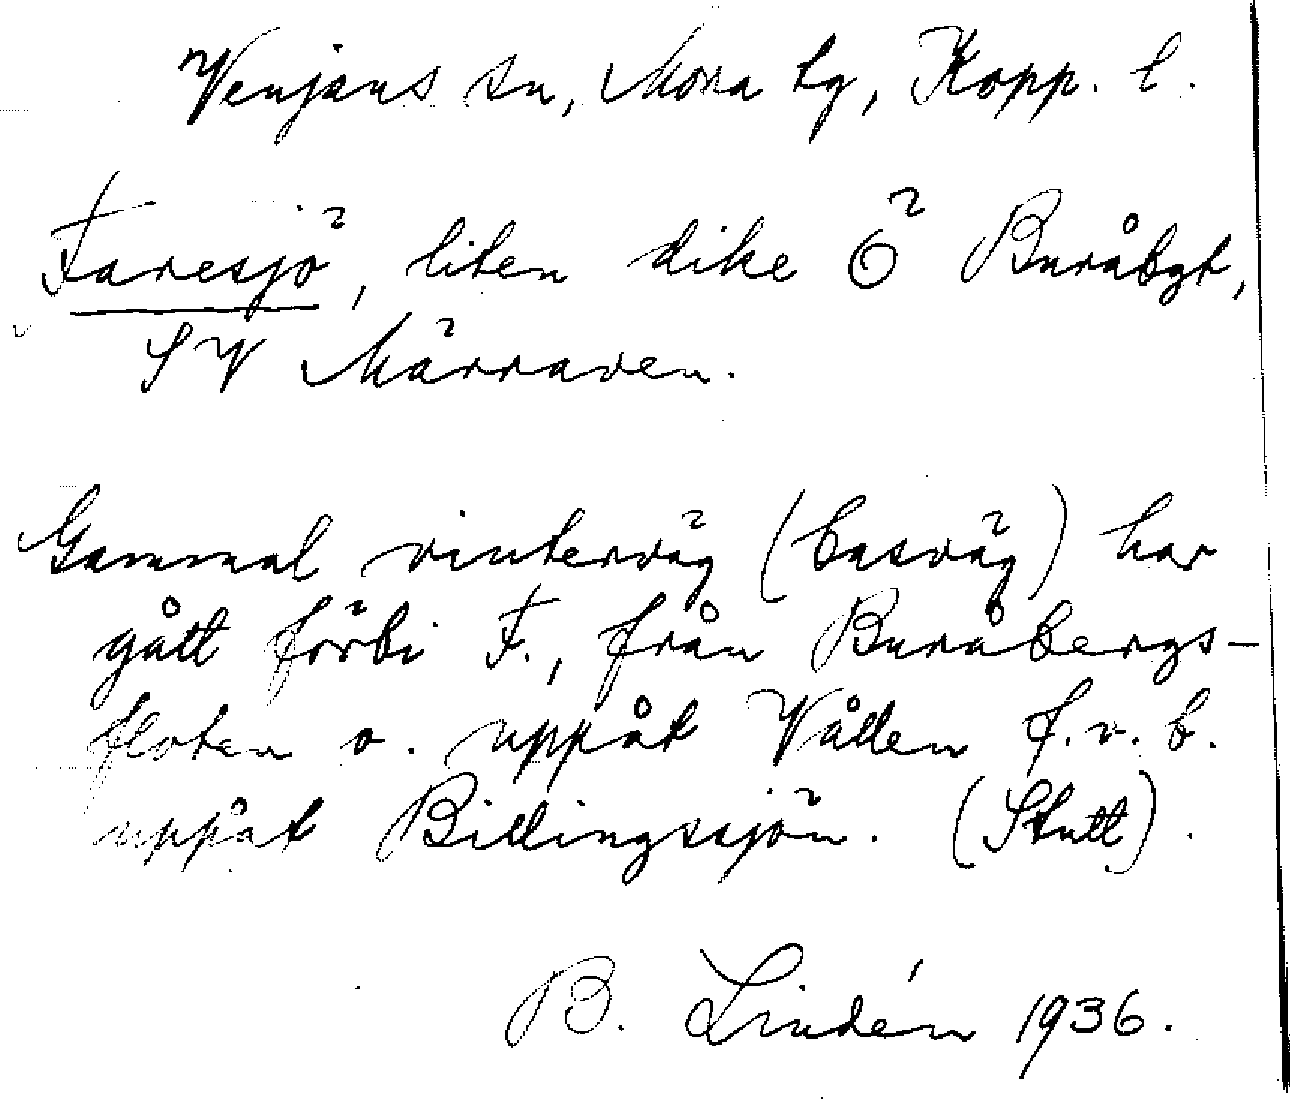 Venjans sn, Mora tg, Kopp. l.
Faresjö, liten dike Ö Buråbgt,
SV Märraven.
Gammal vinterväg (basväg) har
gått förbi F., från Buråbergs-
floten o. uppåt Vållen f.v.b.
uppåt Billingssjön. (Stutt).
B. Lindén 1936.